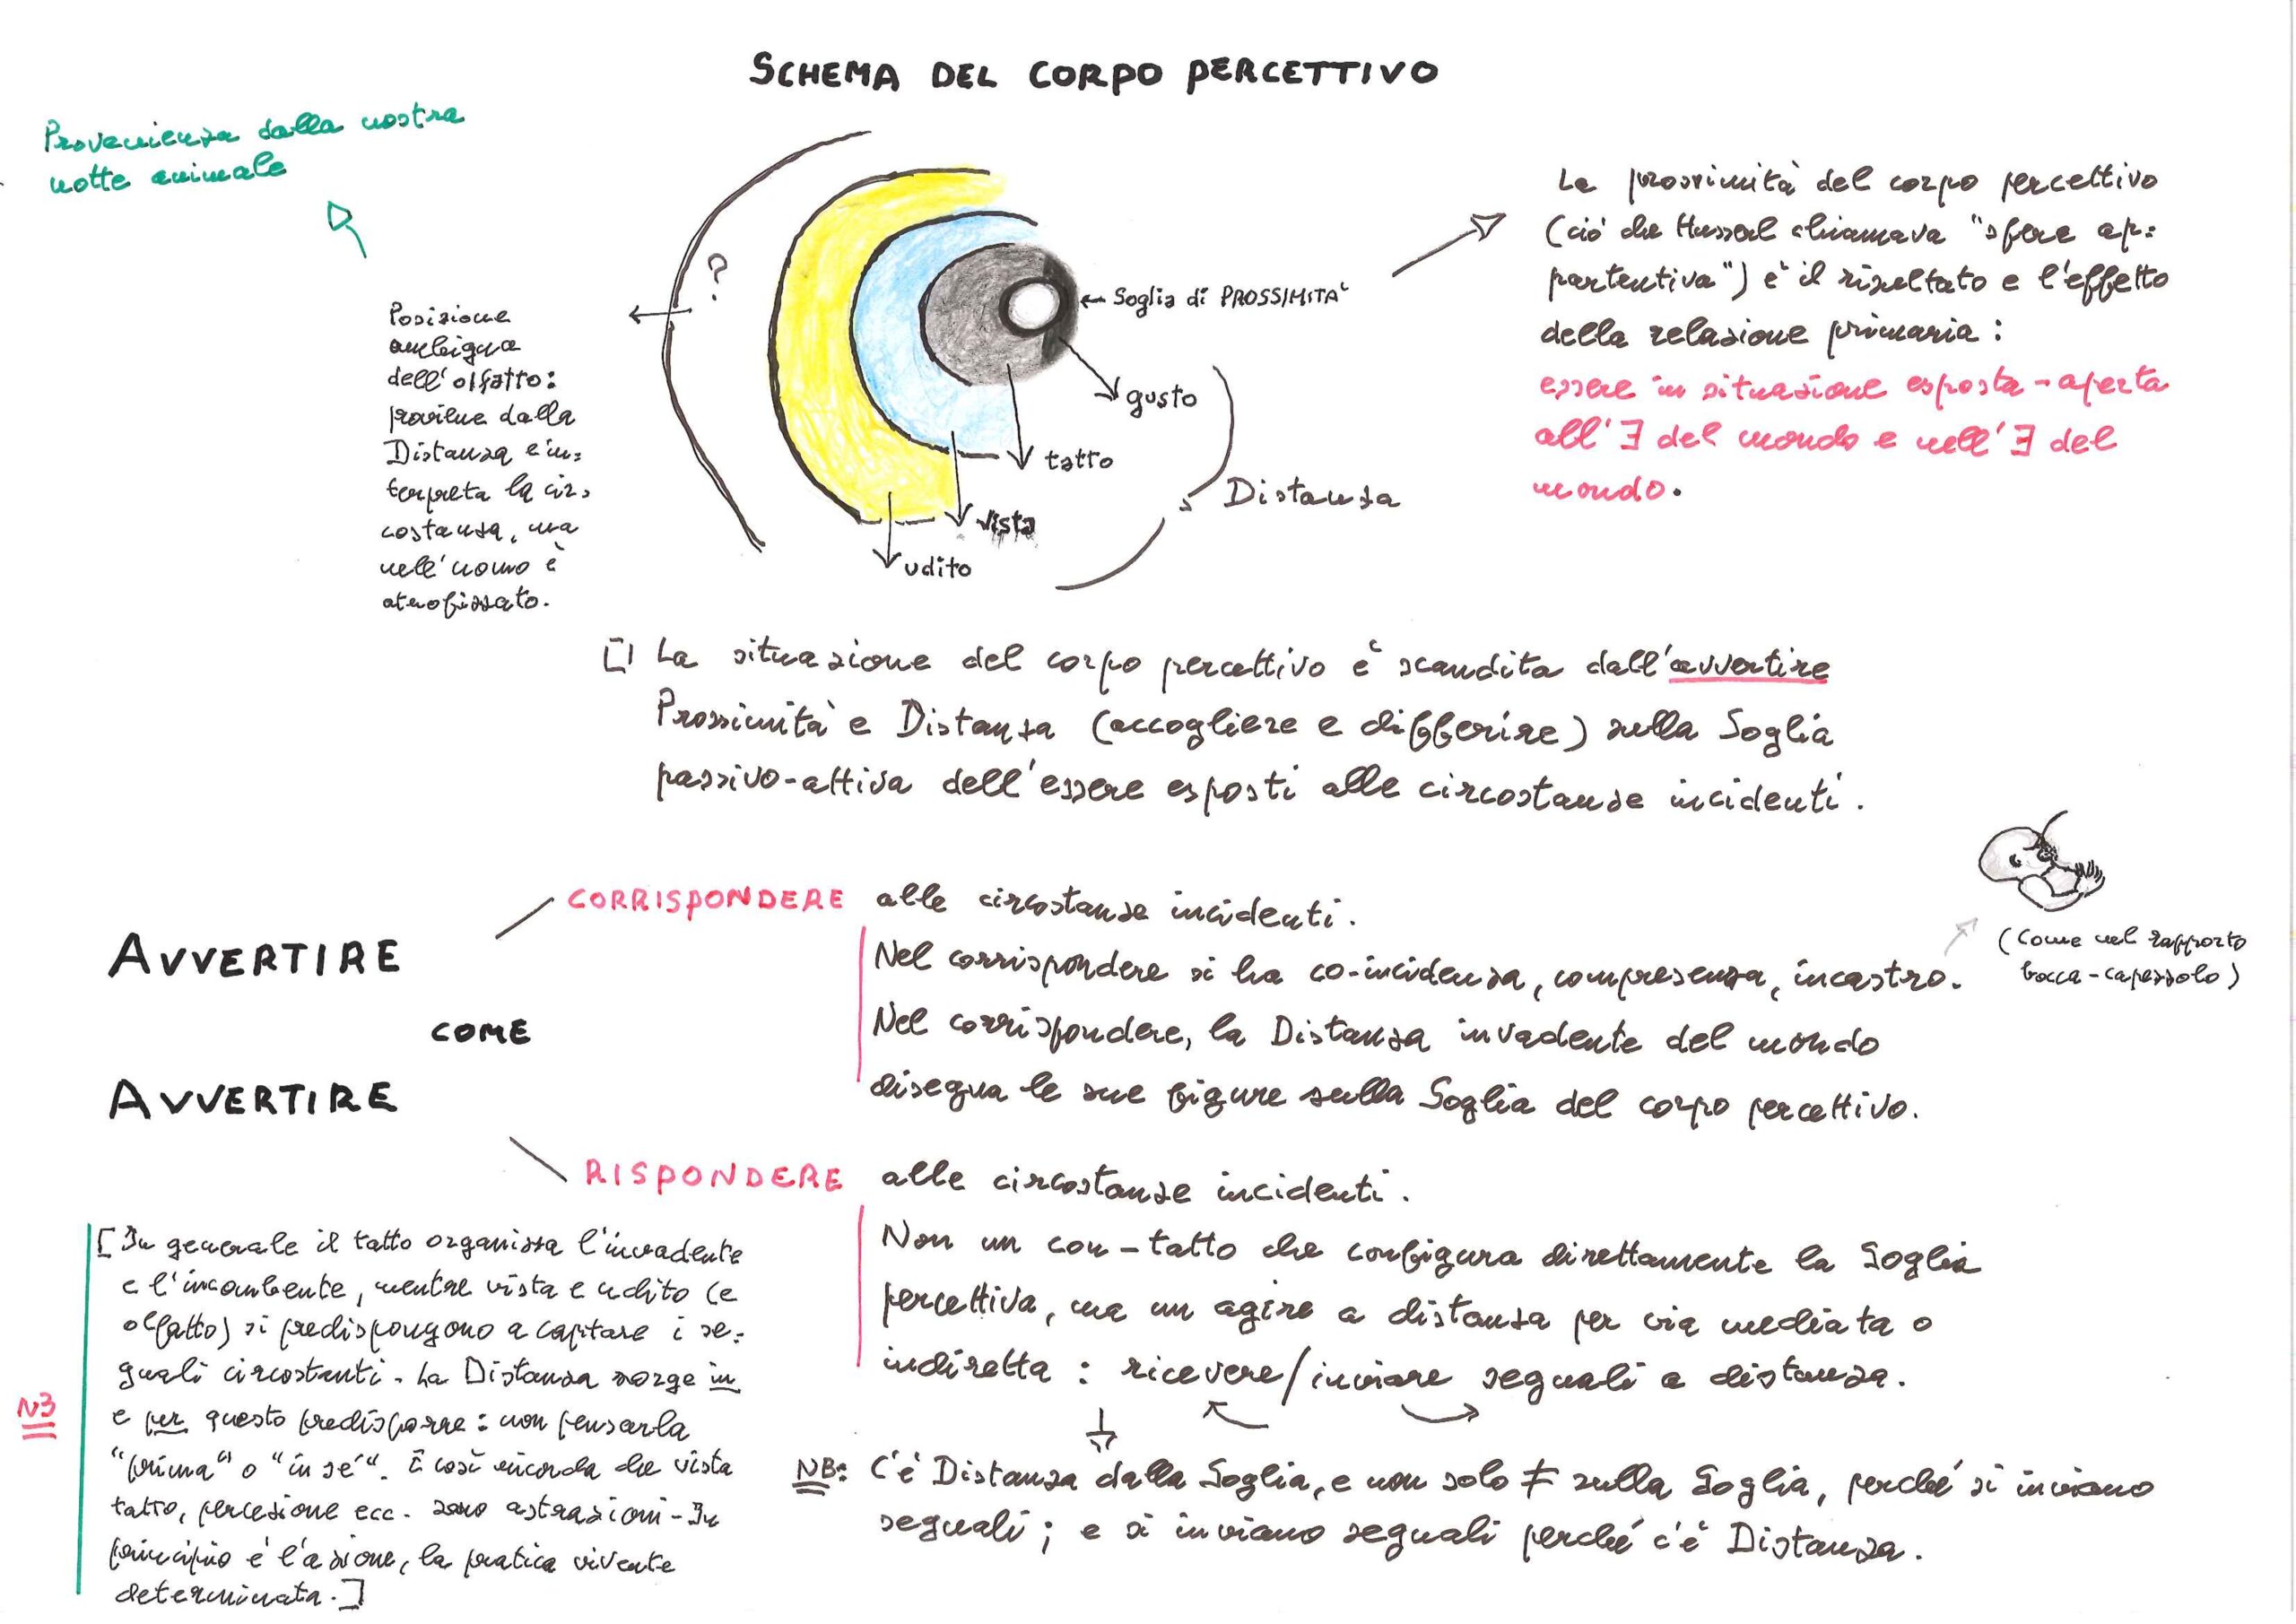 SCHEMA DEL CORPO PERCETTIVO
Provenienza dalla nostra
notte animale
Posizione
ambigua
dell'olfatto:
proviene dalla
Distanza e in=
terpreta la cir=
costanza, ma
nell'uomo è
atrofizzato.
?
Soglia di PROSSIMITA'
gusto
tatto
vista
udito
Distanza
La prossimità del corpo percettivo
(ciò che Husserl chiamava "sfera ap=
partentiva") è il risultato e l'effetto
della relazione primaria:
essere in situazione esposta-aperta
all'∃ del mondo e nell'∃ del
mondo.
[] La situazione del corpo percettivo è scandita dall'avvertire
Prossimità e Distanza (accogliere e differire) sulla Soglia
passivo-attiva dell'essere esposti alle circostanze incidenti.
AVVERTIRE
COME
AVVERTIRE
CORRISPONDERE alle circostanze incidenti.
Nel corrispondere si ha co-incidenza, compresenza, incastro.
Nel corrispondere, la Distanza invadente del mondo
disegna le sue figure sulla Soglia del corpo percettivo.
(Come nel rapporto
bocca-capezzolo)
RISPONDERE alle circostanze incidenti.
Non un con-tatto che configura direttamente la Soglia
percettiva, ma un agire a distanza per via mediata o
indiretta: ricevere/inviare segnali a distanza.
NB: C'è Distanza dalla Soglia, e non solo ≠ sulla Soglia, perché si inviano
segnali; e si inviano segnali perché c'è Distanza.
NB
[In generale il tatto organizza l'invadente
e l'incombente, mentre vista e udito (e
olfatto) si predispongono a captare i se=
gnali circostanti. La Distanza sorge in
e per questo predisporre: non pensarla
"prima" o "in sé". E così ricorda che vista
tatto, percezione ecc. sono astrazioni. In
principio è l'azione, la pratica vivente
determinata.]